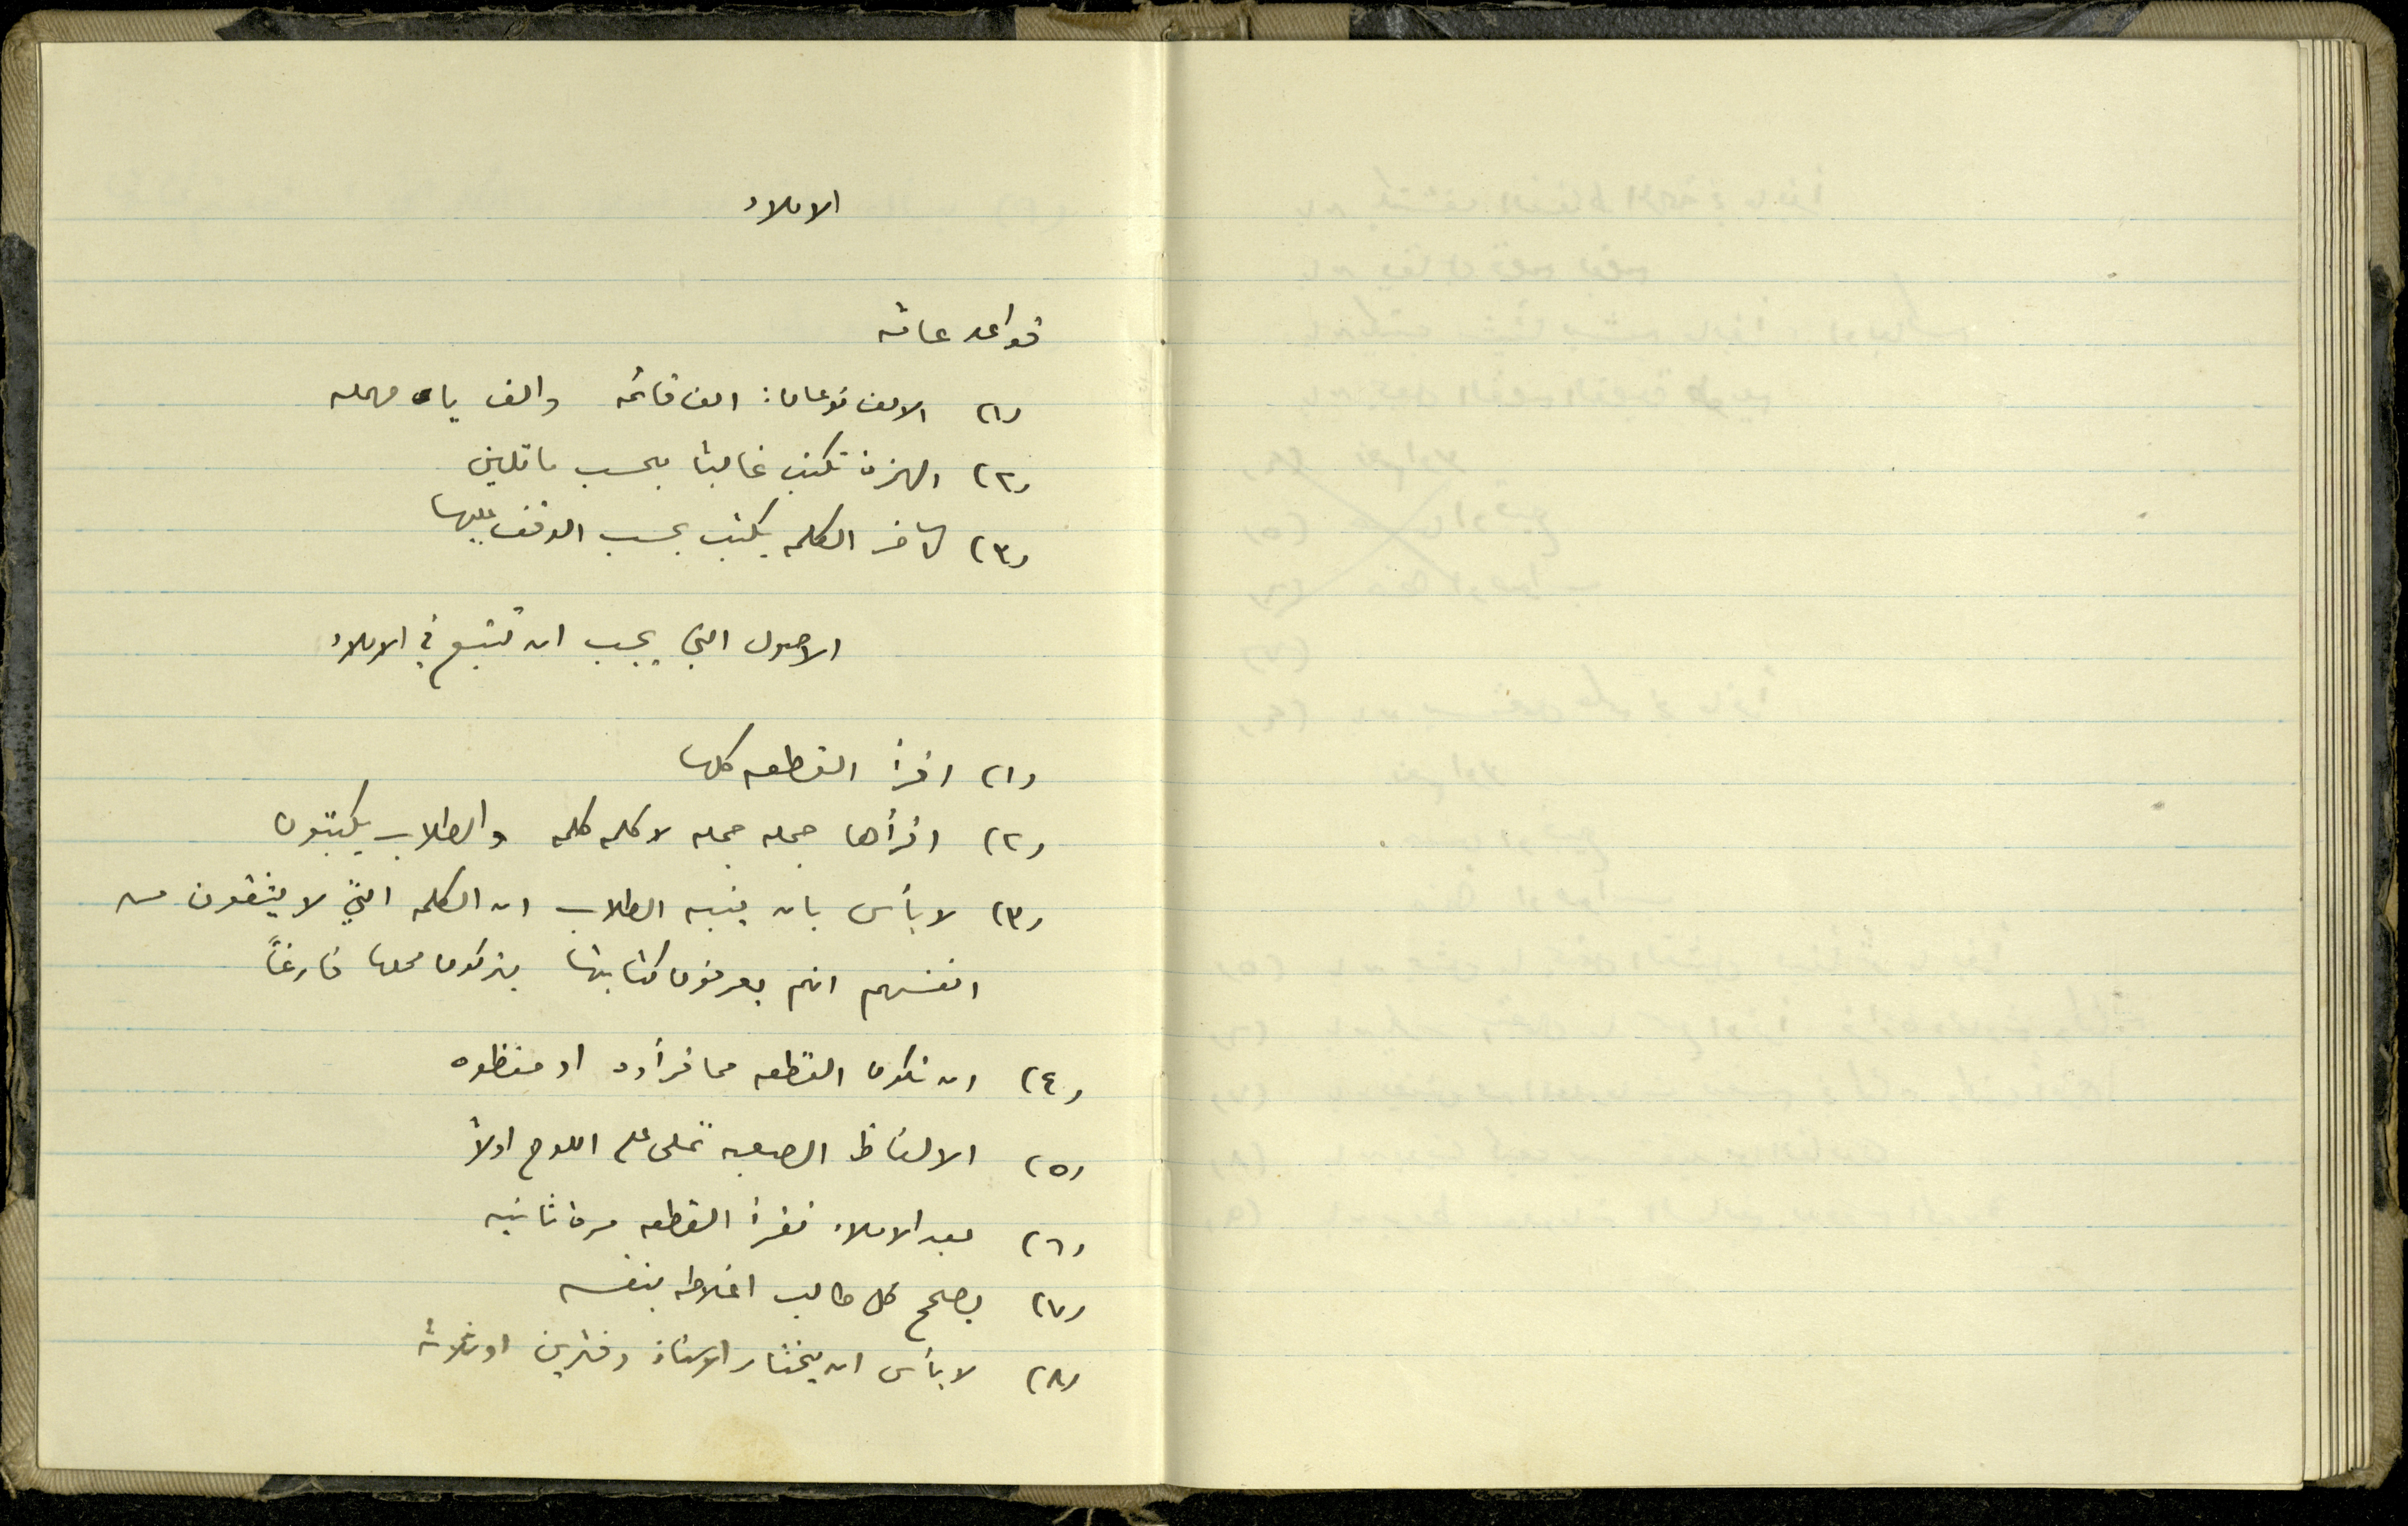 الاملاء
قواعد عامه
(١) الالف نوعان: الف قائمه والف ياء مهمله
(٢) الهمزة تكتب غالبًا بحسب ما تلين
(٣) آخر الكلمه يكتب بحسب الوقف عليها
الاصول التي يجب ان تتبع في الاملاء
(١) اقرأ القطعه كلها
(٢) اقرأها جمله جمله لا كلمه كلمه والطلاب يكتبون
(٣) لا بأس بان ينبه الطلاب ان الكلمه التي لا يثقون من
انفسهم انهم يعرفون كتابتها يتركون محلها فارغاً
(٤) ان تكون القطعه مما قرأوه او حفظوه
(٥) الالفاظ الصعبه تملى على اللوح اولاً
(٦) بعد الاملاء تقرأ القطعه مرة ثانيه
(٧) يصحح كل طالب اغلاطه بنفسه
(٨) لا بأس ان يختار الاستاذ دفترين او ثلاثه